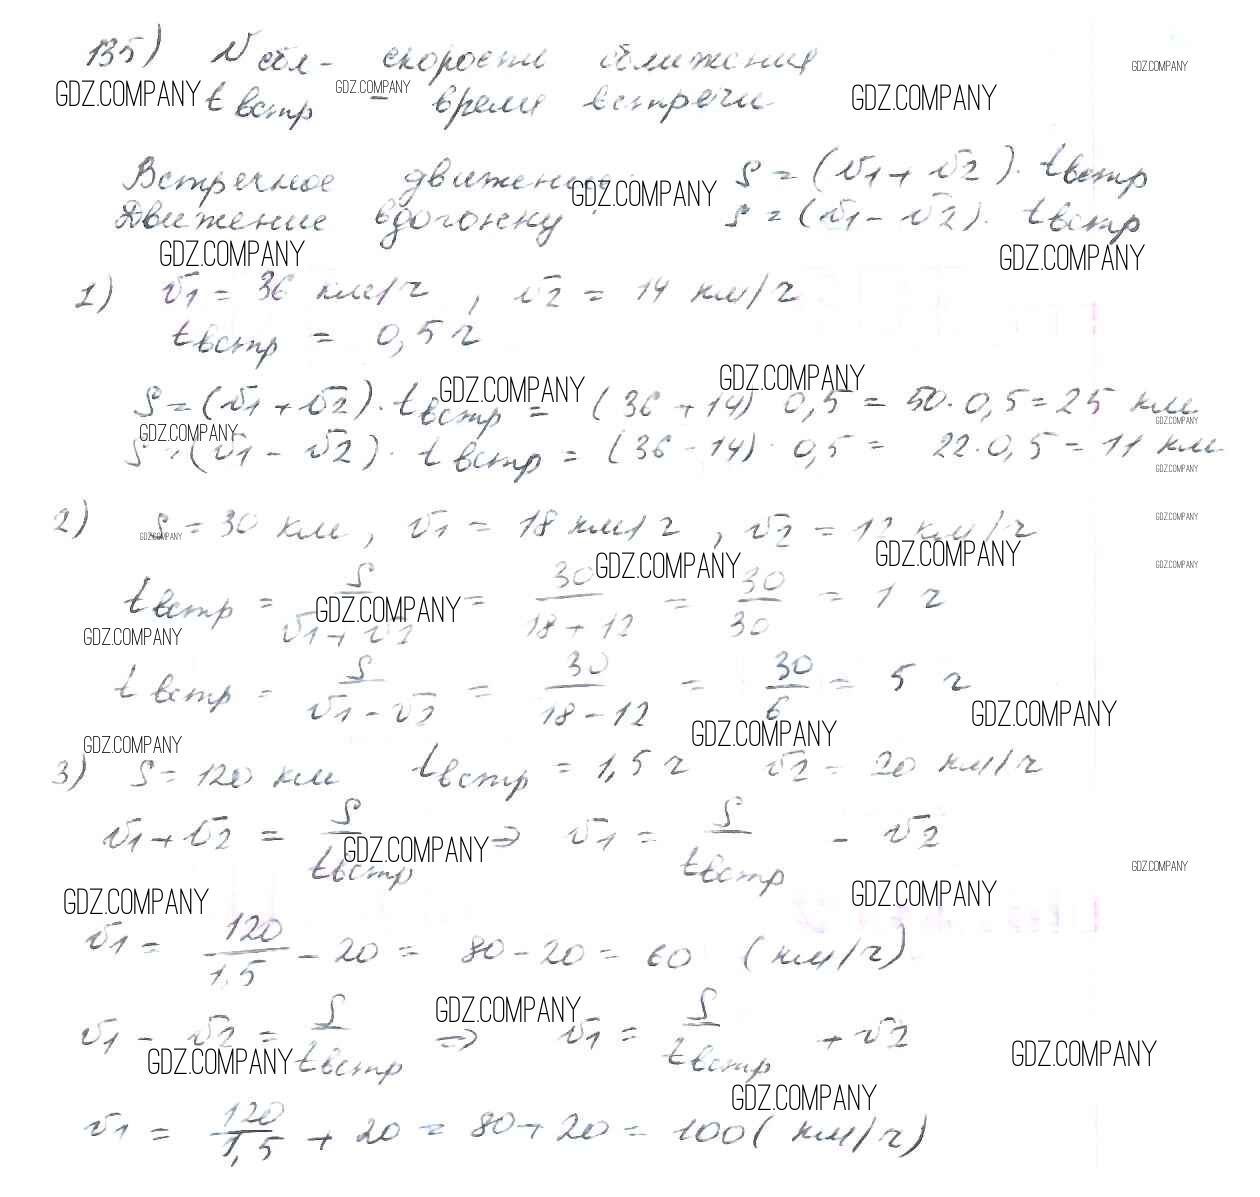 135) v сбл - скорость сближения
GDZ.COMPANY
t встр - время встречи
GDZ.COMPANY
GDZ.COMPANY
GDZ.COMPANY
Встречное движение: S = (v1 + v2) · t встр
GDZ.COMPANY
Движение вдогонку: S = (v1 - v2) · t встр
GDZ.COMPANY
GDZ.COMPANY
1) v1 = 36 км/ч , v2 = 14 км/ч
t встр = 0,5 ч
GDZ.COMPANY
GDZ.COMPANY
S = (v1 + v2) · t встр = (36 + 14) 0,5 = 50 · 0,5 = 25 км
GDZ.COMPANY
GDZ.COMPANY
S = (v1 - v2) · t встр = (36 - 14) · 0,5 = 22 · 0,5 = 11 км
GDZ.COMPANY
2) S = 30 км , v1 = 18 км/ч , v2 = 12 км/ч
GDZ.COMPANY
GDZ.COMPANY
GDZ.COMPANY
GDZ.COMPANY
GDZ.COMPANY
t встр = S / (v1 + v2) = 30 / (18 + 12) = 30 / 30 = 1 ч
GDZ.COMPANY
GDZ.COMPANY
t встр = S / (v1 - v2) = 30 / (18 - 12) = 30 / 6 = 5 ч
GDZ.COMPANY
GDZ.COMPANY
GDZ.COMPANY
3) S = 120 км t встр = 1,5 ч v2 = 20 км/ч
v1 + v2 = S / t встр ⇒ v1 = S / t встр - v2
GDZ.COMPANY
GDZ.COMPANY
GDZ.COMPANY
GDZ.COMPANY
v1 = 120 / 1,5 - 20 = 80 - 20 = 60 (км/ч)
GDZ.COMPANY
v1 - v2 = S / t встр ⇒ v1 = S / t встр + v2
GDZ.COMPANY
GDZ.COMPANY
GDZ.COMPANY
v1 = 120 / 1,5 + 20 = 80 + 20 = 100 (км/ч)